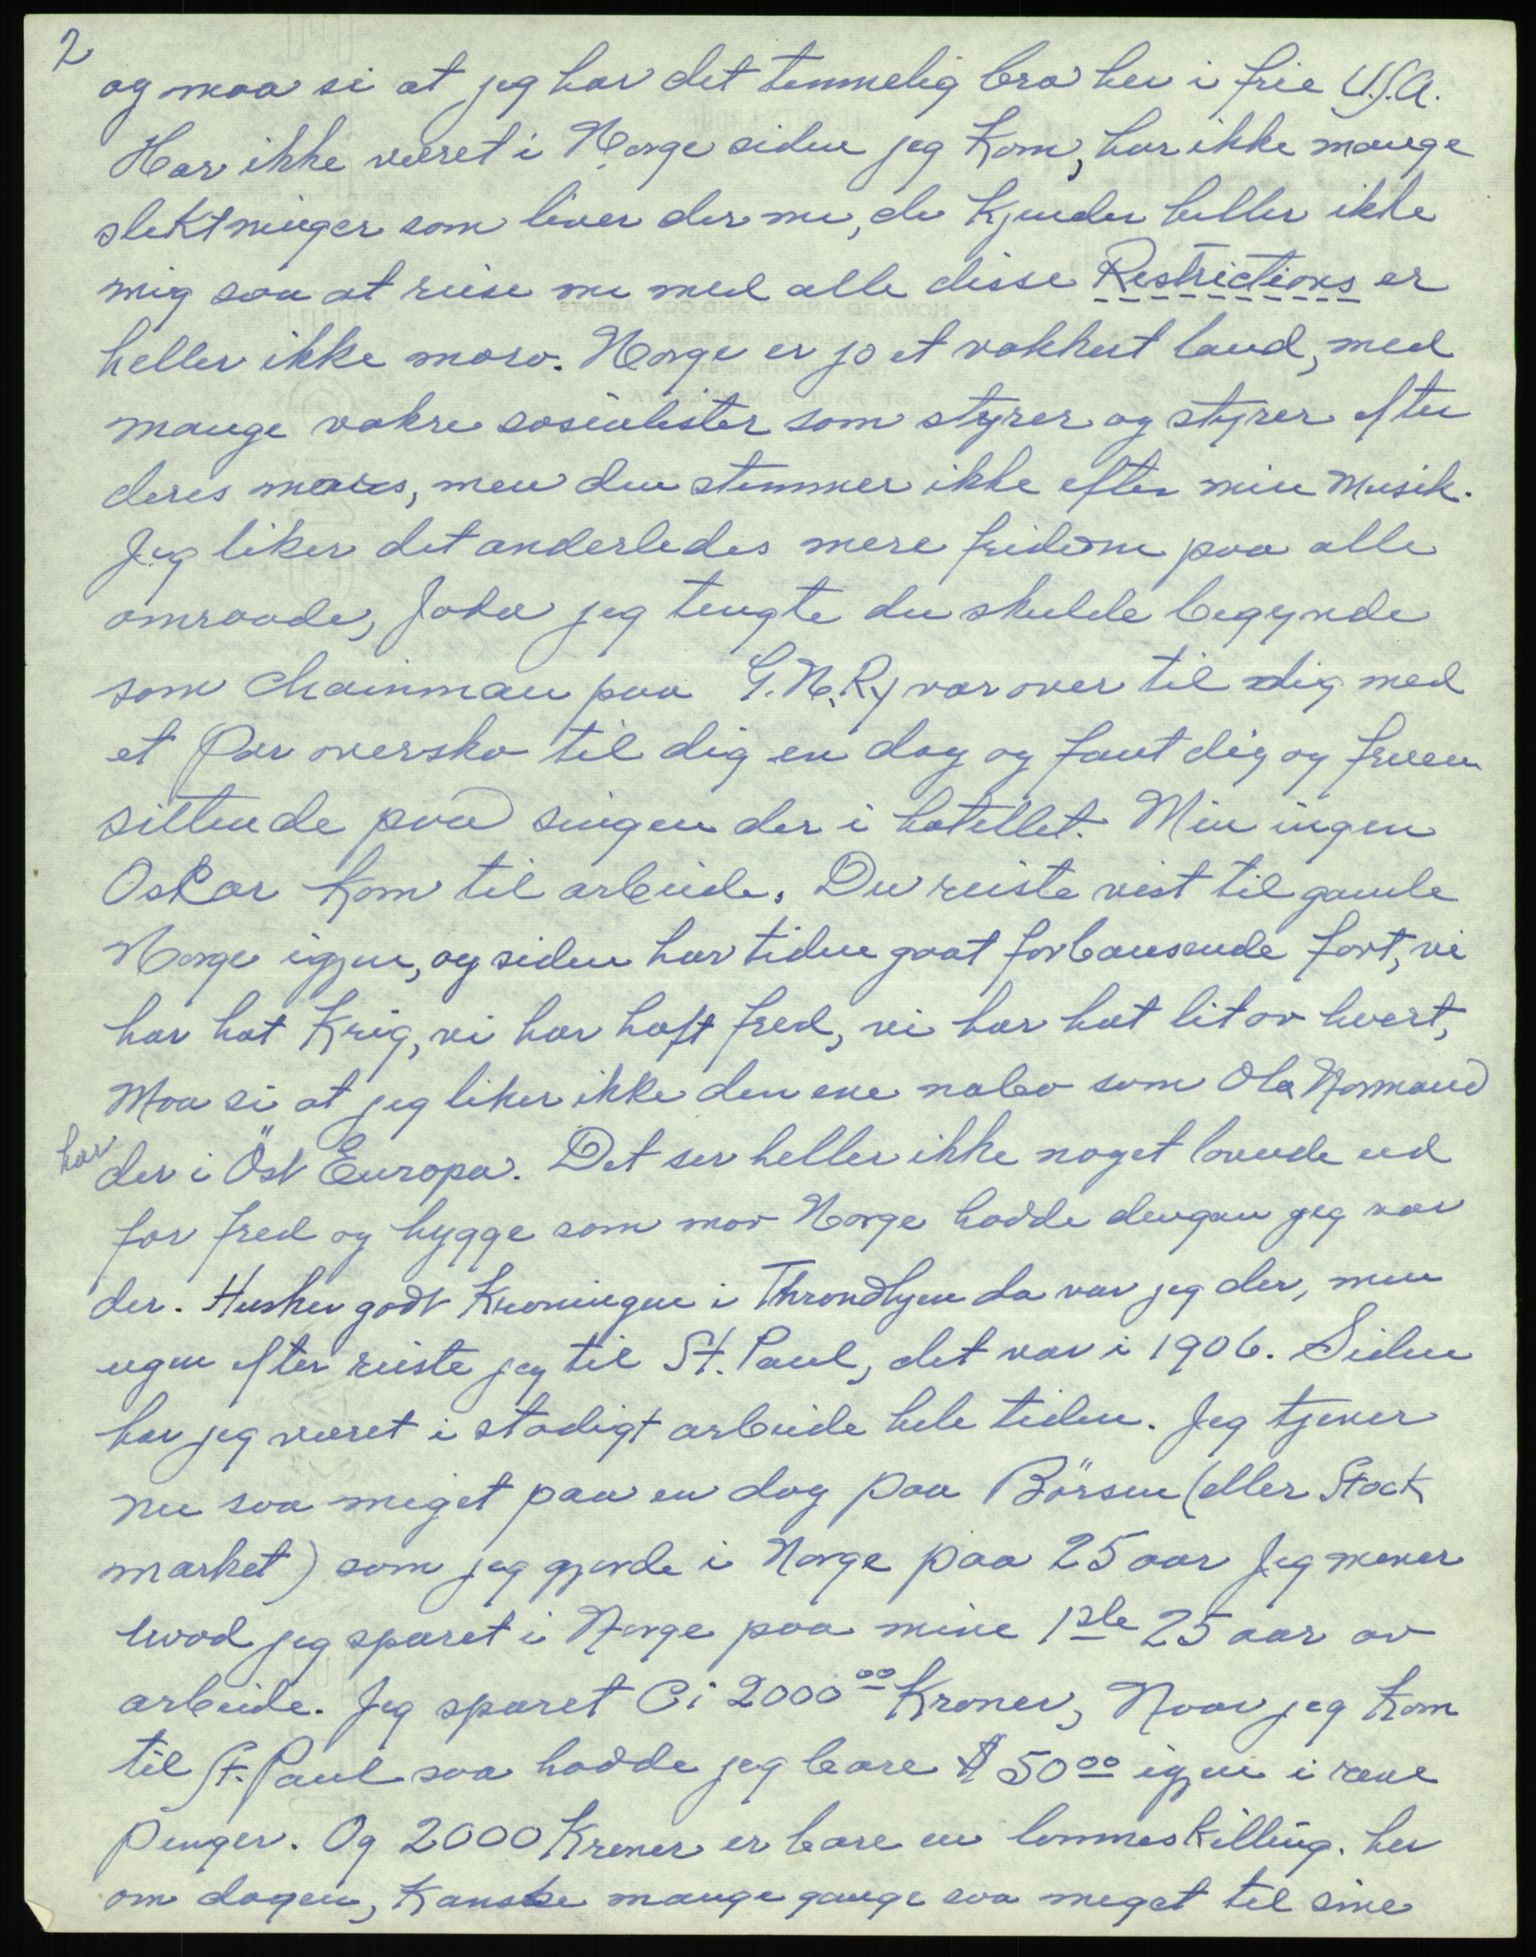 2
og maa si at jeg har det temmelig bra her i frie U.S.A.
Har ikke været i Norge siden jeg kom, har ikke mange
slektninger som liver der nu, de kjender heller ikke
mig saa at reise nu med alle disse Restrictions er
heller ikke moro. Norge er jo et vakkert land, med
mange vakre sosialister som styrer og styrer efter
deres, men den stemmer ikke efter min Musik.
Jeg liker det anderledes mere fridom paa alle
omraade, Joda jeg tengte du skulde begynde
som chainman paa G.N.Ry var over til dig med
et par oversko til dig en dag og fant dig og fruen
sittende paa sengen der i hotellet. Men ingen
Oskar kom til arbeide. Du reiste vist til gamle
Norge igjen, og siden har tiden gaat forbausende fort, vi
har hat Krig, vi har haft fred, vi har hat lit av hvert,
Maa si at jeg liker ikke den ene nabo som Ola Normand
har
der i Öst Europa. Det ser heller ikke noget lovende ud
for fred og hygge som mor Norge hadde dengan jeg var
der. Husker godt Kroningen i Throndhjem da var jeg der, men
ugen efter reiste jeg til St. Paul, det var i 1906. Siden
har jeg været i stadigt arbeide hele tiden. Jeg tjener
nu saa meget paa en dag paa Börsen (eller Stock
market) som jeg gjorde i Norge paa 25 aar Jeg mener
hvad jeg sparet i Norge paa mine 1ste 25 aar av
arbeide. Jeg sparet Ci 2000 00 Kroner, Naar jeg kom
til St. Paul saa hadde jeg bare $ 50 00 igjen i rene
penger. Og 2000 Kroner er bare en lommeskilling. her
om dagen, Kanske mange gange saa meget til sine